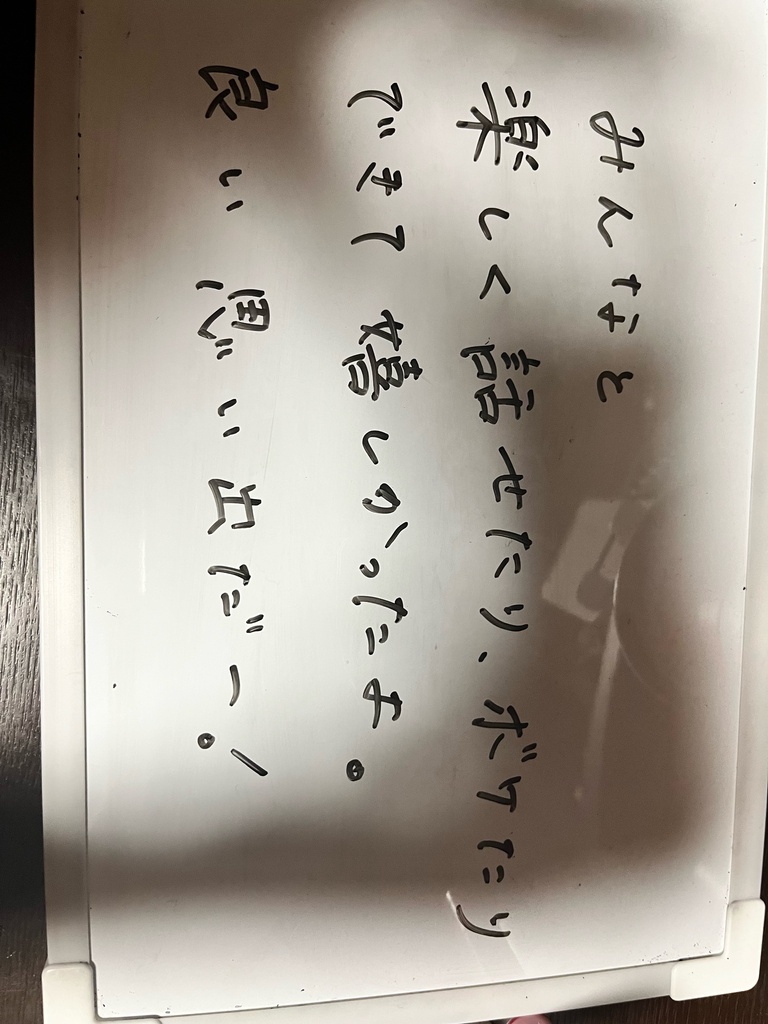 みんなと
楽しく話せたり、ボケたり
できて嬉しかったよ。
良い思い出だー!